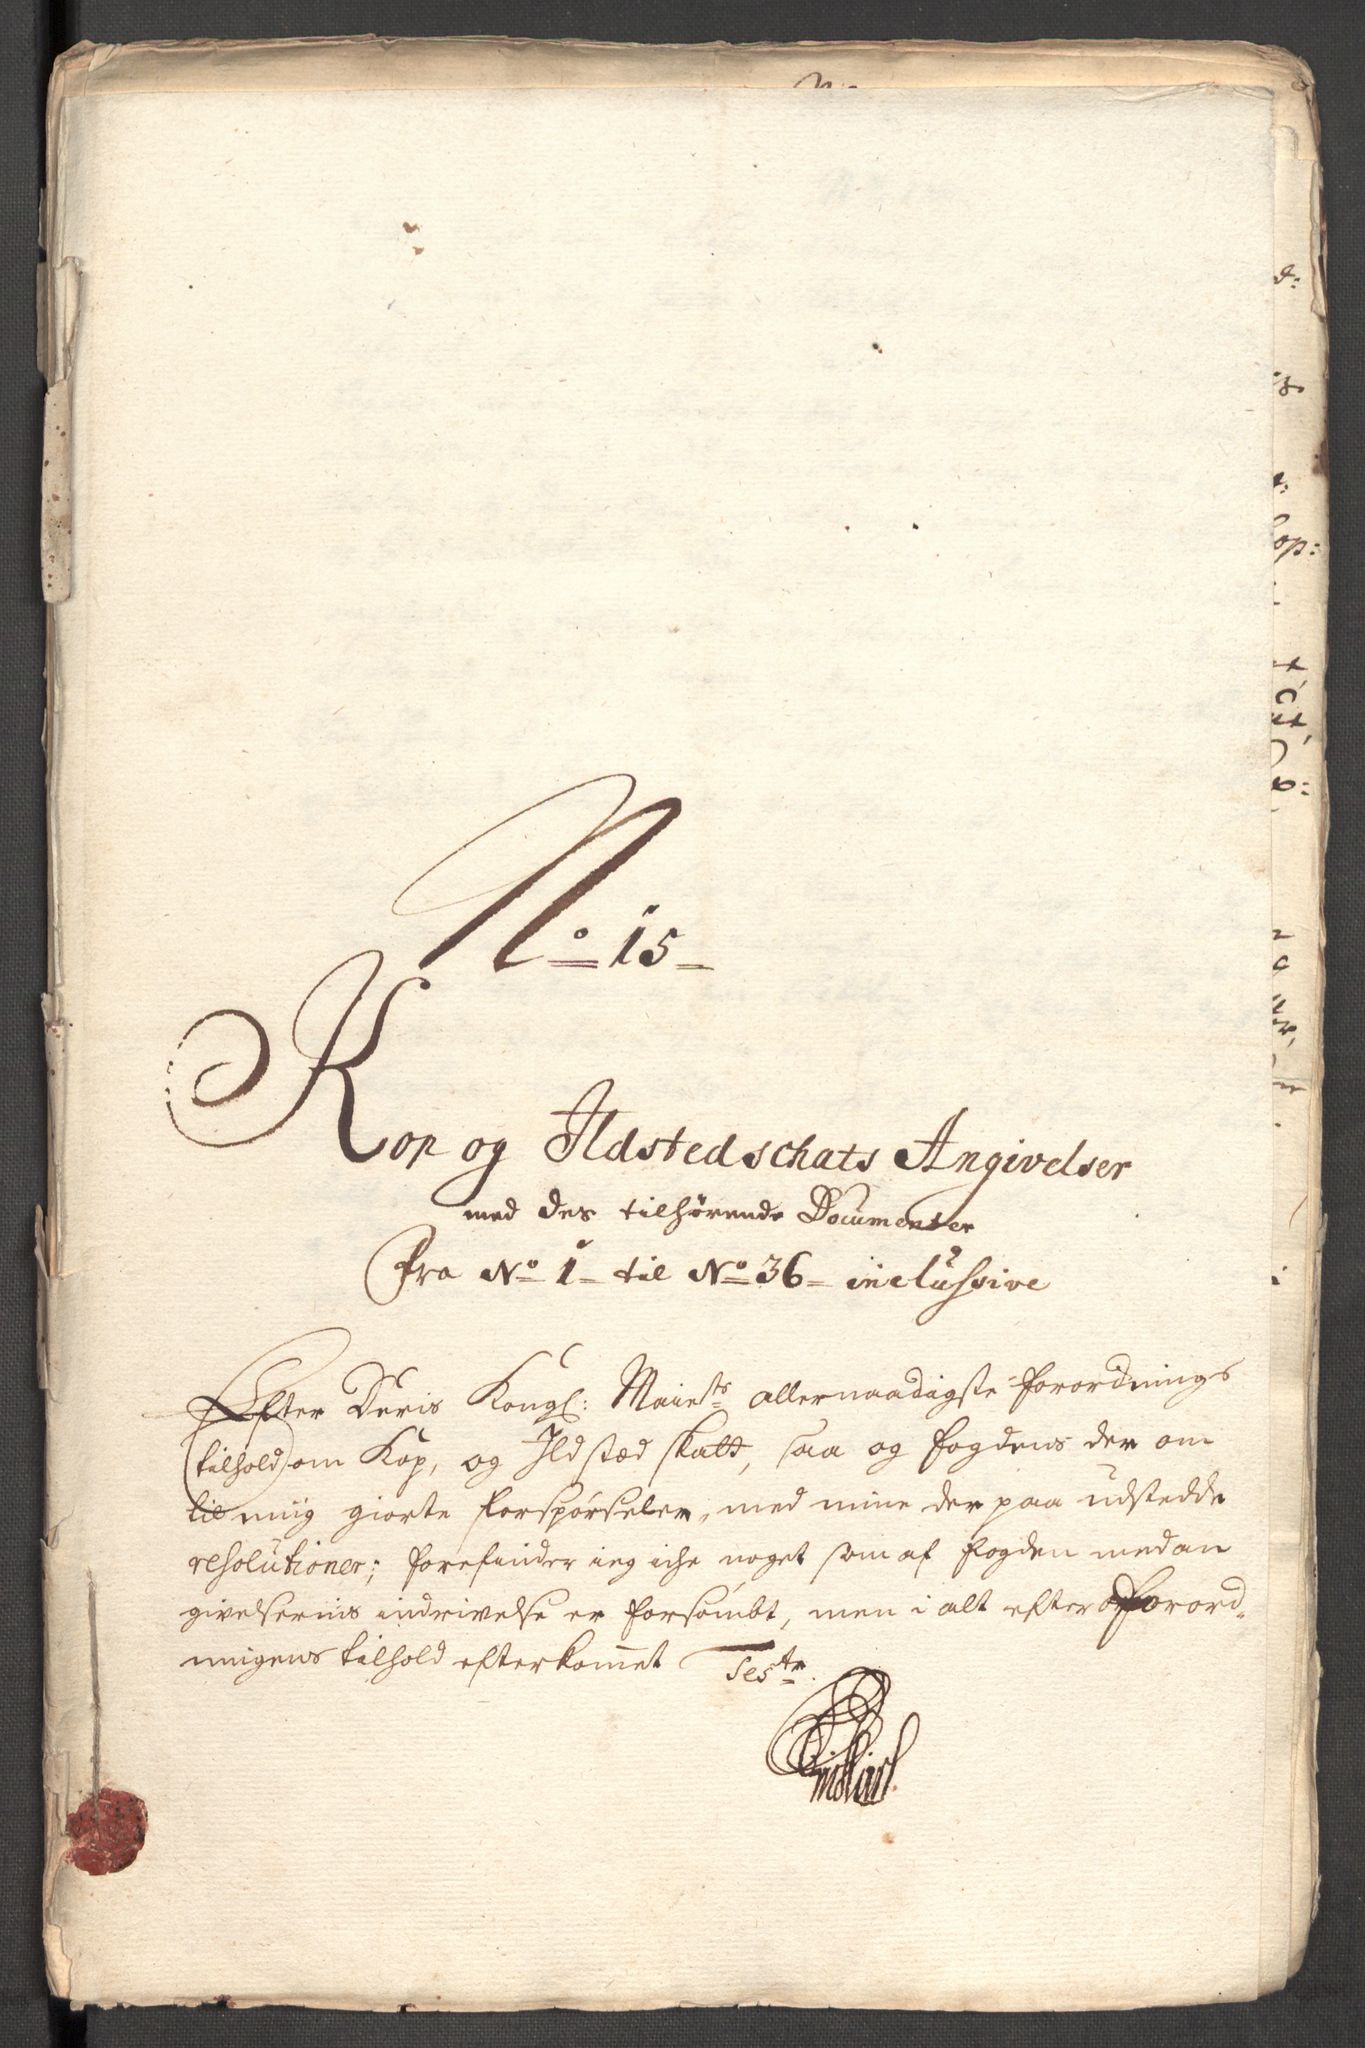 No 15
Kop og Ildstedschats Angivelser
med des tilhørende Documenter
Fra No 1 til No 36 inclussive
Efter Deris Kongl: Maiests allernaadigste forordnings
tilhold om Kop, og Ildstæd skatt, saa og fogdens der om
til miig giorte forspørseler, med mine der paa udstedde
resolutioner; forefinder ieg iche noget som af fogden med an
givelsernis indrivelse er forsømbt, men i alt efter forord-
ningens tilhold efterkommet Teste.